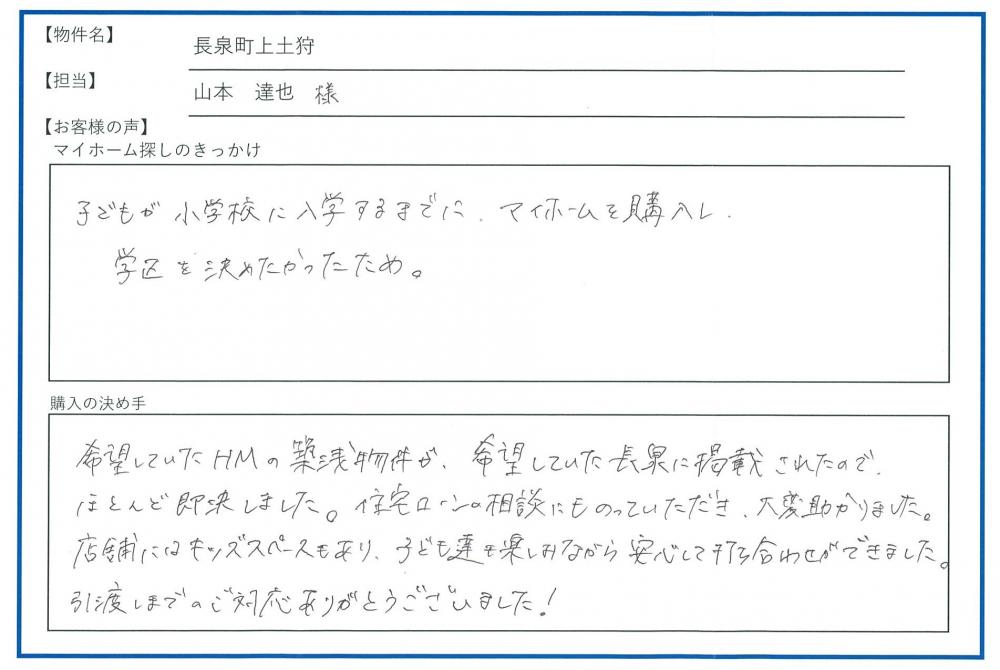 【物件名】
長泉町上土狩
【担当】
山本　達也　様
【お客様の声】
マイホーム探しのきっかけ
子どもが小学校に入学するまでに、マイホームを購入し、
学区を決めたかったため。
購入の決め手
希望していたHMの築浅物件が、希望していた長泉に掲載されたので、
ほとんど即決しました。住宅ローンの相談にものっていただき、大変助かりました。
店舗にはキッズスペースもあり、子ども達も楽しみながら安心して打ち合わせができました。
引渡しまでのご対応ありがとうございました!